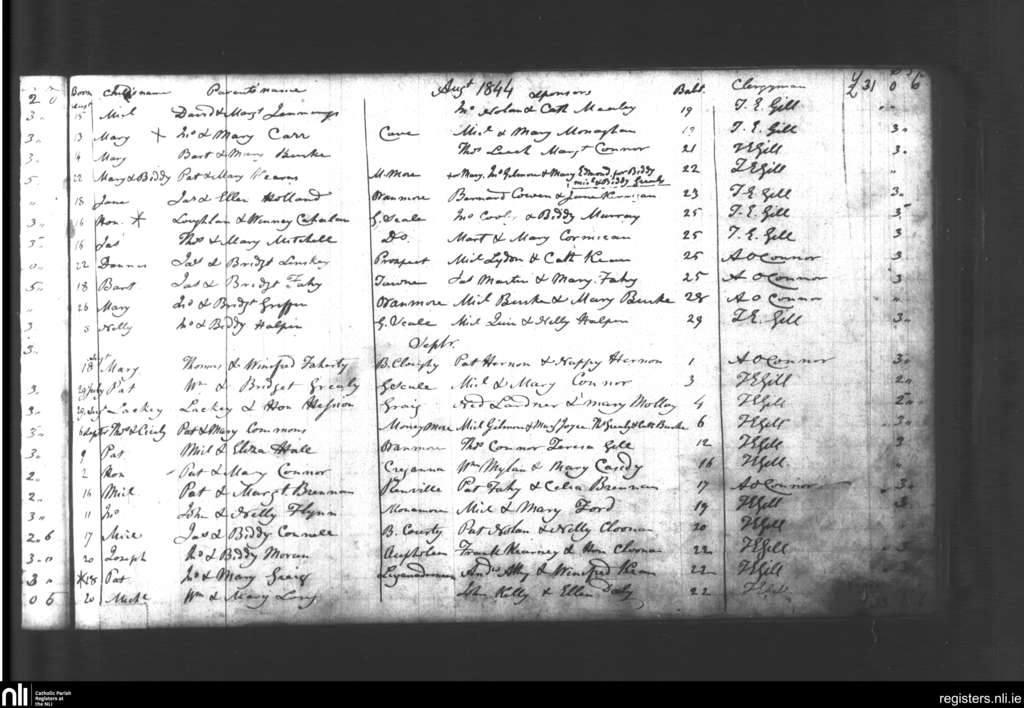 Born Chris name Parents name Augt 1844 Sponsors Babt. Clergyman £31 0 6
Augt 15 Mick David & Margt Jennings Jno Nolan & Cath Manley 19 T. E. Gill
3" 13 Mary X Jno & Mary Carr Cave Mick & Mary Monaghan 19 T. E. Gill 3"
3" 4 Mary Bart & Mary Burke Thos Leech Margt Connor 21 T E Gill 3"
5" 22 Mary & Biddy Pat & Mary Kearns M. More for Mary, Jno Gilmore & Mary Edmond, for Biddy 22 T E Gill
Mick & Biddy Grealy
18 Jane Jas & Ellen Holland Wanmore Bernard Cowen & Jane 23 T. E. Gill 3
3" 16 Hon. X Loughlan & Winney Cahalan G. Veale Jno & Biddy Murray 25 T. E. Gill 3"
3" 16 Jas Thos & Mary Mitchell Do. Mart & Mary Cormican 25 T. E. Gill 3
22 Dennis Jas & Bridgt Linskey Prospect Mick Lydon & Cath Kean 25 A O Connor 3
5" 18 Bart Jas & Bridgt Fahy Tawnee Jas Martin & Mary Fahy 25 A O Connor 3
26 Mary Jno & Bridgt Griffin Wanmore Mick Burke & Mary Burke 28 A O Connor
3 5 Nelly Jno & Biddy Halpin G. Veale Mick Quin & Nelly Halpin 29 T. E. Gill 3"
3. Septr.
18 Mary Thomas & Winifred Faherty B. Cloughy Pat Hernon & Nappy Hernon 1 A O Connor 3"
3. 29 July Pat Wm & Bridget Grealy G Veale Mick & Mary Connor 3 T E Gill 2"
3" 29 Augt Lackey Lackey & Hon Hession Graig Ned Lardner & Mary Molloy 4 T E Gill 2"
3" 6 Septr Thos & Cicily Pat & Mary Commons Moneymore Mick Gilmore & Mary Joyce Ths Grealy & Cath Burke 6 T E Gill 3"
3" 9 Pat Mick & Eliza Hall Wanmore Thos Connor Teresa Gill 12 T E Gill 3
2. 2 Hon Pat & Mary Connor Creganna Wm Mylan & Mary Casidy 16 T E Gill
2. 16 Mick Pat & Margt Brennan Renville Pat Fahy & Celia Brennan 17 A O Connor 3"
3" 11 Jno John & Nelly Flynn Monamore Mick & Mary Ford 19 T E Gill 3
2" 6 17 Mick Jas & Biddy Connell B. Courty Pat Nolan & Nelly Cloonan 20 T E Gill
3" 20 Joseph Jno & Biddy Moran Frank Kearney & Hon Cloonan 22 T E Gill
3" X 18 Pat Jno & Mary Greig & Winifred Kean 22 T E Gill
0 6 20 Mick Wm & Mary Long John Kelly & Ellen 22 T E Gill
nli Catholic Parish Registers at the NLI registers.nli.ie